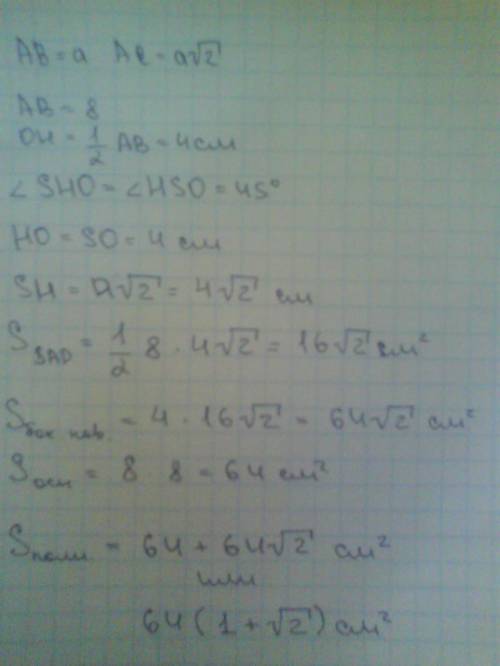 AB = a AC = a√2
AB = 8
OH = 1/2 AB = 4 см
∠SHO = ∠HSO = 45°
HO = SO = 4 см
SH = a√2 = 4√2 см
S SAD = 1/2 8 · 4√2 = 16√2 см²
S бок пов. = 4 · 16√2 = 64√2 см²
S осн = 8 8 = 64 см²
S полн = 64 + 64√2 см²
или
64(1 + √2) см²